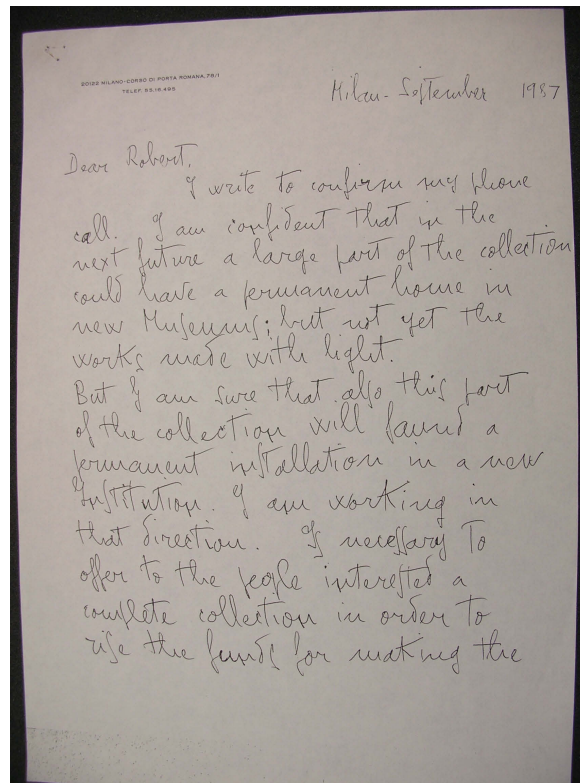 20122 MILANO-CORSO DI PORTA ROMANA, 78/1
TELEF. 55.18.495
Milan - September 1987
Dear Robert.
I write to confirm my phone
call. I am confident that in the
next future a large part of the collection
could have a permanent home in
new Museums; but not yet the
works made with light.
But I am sure that also this part
of the collection will faund a
permanent installation in a new
Institution. I am working in
that direction. Is necessary to
offer to the people interested a
complete collection in order to
rise the funds for making the